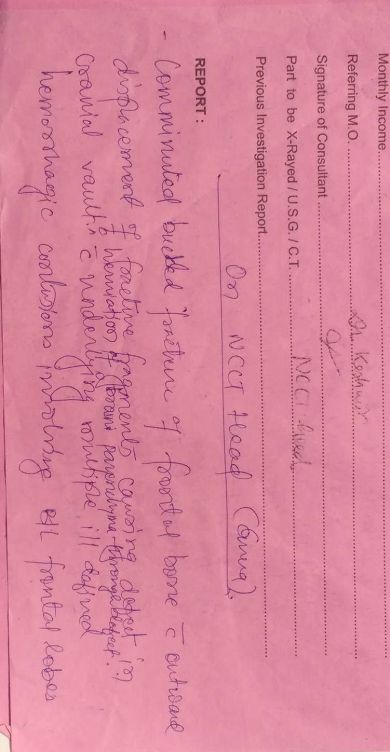 Monthly Income
Referring M.O. Dr. Keshav
Signature of Consultant
Part to be X-Rayed / U.S.G. / C.T. NCCT head
Previous Investigation Report
On NCCT Head
REPORT :
- Comminuted fracture of frontal bone c̄ outward
displacement of fracture fragments causing defect in
& herniation of brain parenchyma through defect.
cranial vault, c̄ underlying multiple ill defined
hemorrhagic contusions involving B/L frontal lobes